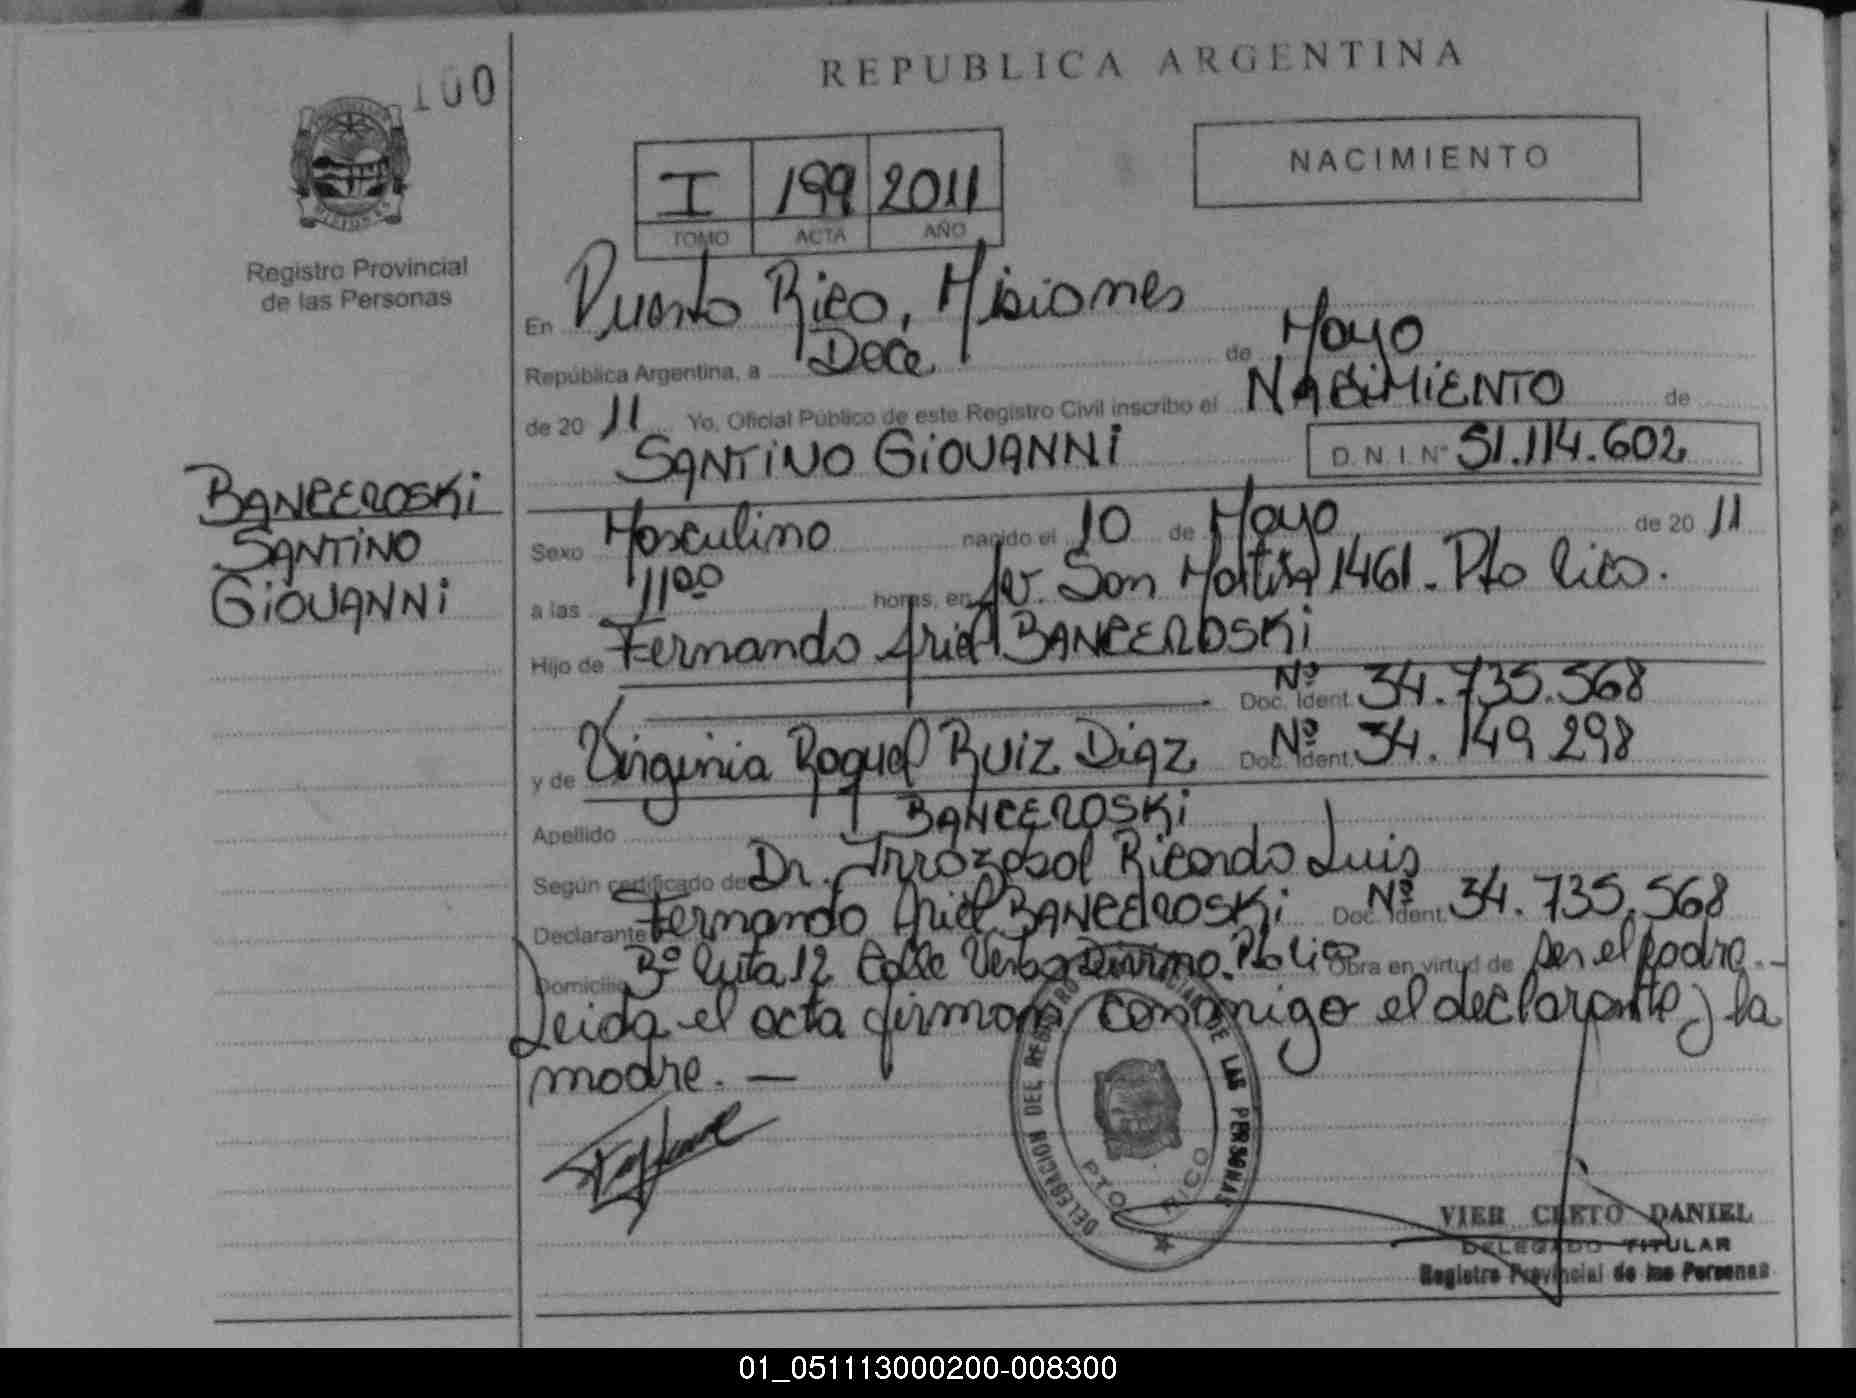 REPUBLICA ARGENTINA
100
NACIMIENTO
I 199 2011
TOMO ACTA AÑO
Registro Provincial
de las Personas
En Puerto Rico, Misiones
República Argentina, a Doce de Mayo
de 20 11 Yo, Oficial Público de este Registro Civil inscribo el NACIMIENTO de
SANTINO GIOVANNI D.N.I. Nº 51.114.602
BANCEROSKI
SANTINO
GIOVANNI
Sexo Masculino nacido el 10 de Mayo de 20 11
a las 11:00 horas, en Av. San Martin 1461. Pto Rico.
Hijo de Fernando Ariel BANCEROSKI
Doc. Ident. Nº 34.735.568
y de Virginia Raquel RUIZ DIAZ Doc. Ident. Nº 34.149.298
Apellido BANCEROSKI
Según certificado de Dr. Ricardo Luis
Declarante Fernando Ariel BANCEROSKI Doc. Ident. Nº 34.735.568
Domicilio Bº Ruta 12 Calle Verbo Divino. Pto Rico Obra en virtud de ser el padre.-
Leida el acta firman conmigo el declarante y la
madre. —
DELEGACION DEL REGISTRO PROVINCIAL DE LAS PERSONAS
PTO RICO
VIER CLETO DANIEL
DELEGADO TITULAR
Registro Provincial de las Personas
01_051113000200-008300